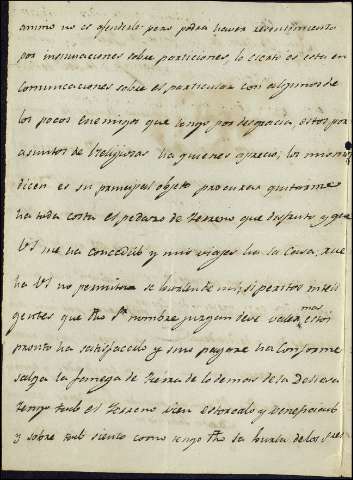 animo no es ofenderle pero podra haver resentimiento
por insinuaciones sobre particiones, lo cierto es esta en
comunicaciones sobre el particular con algunos de
los pocos Enemigos que tengo por desgracia estos por
asuntos de Religiosas ha quienes aprecio, los mismos
dicen es su principal objeto procurar quitarme
ha toda costa el pedazo de terreno que disfruto y que
Vd me ha concedido y mis viajes ha la Casa, que
ha Vd no permitira se burlen de mi, si peritos inteli
gentes que Vd nombre juzgan deve valer mas estoi
pronto ha satisfacerlo y sino pagare ha conforme
salga la fanega de tierra de lo demas de la Dehesa
tengo todo el terreno bien estercolado y beneficiado
y sobre todo siento como tengo dho la burla de los